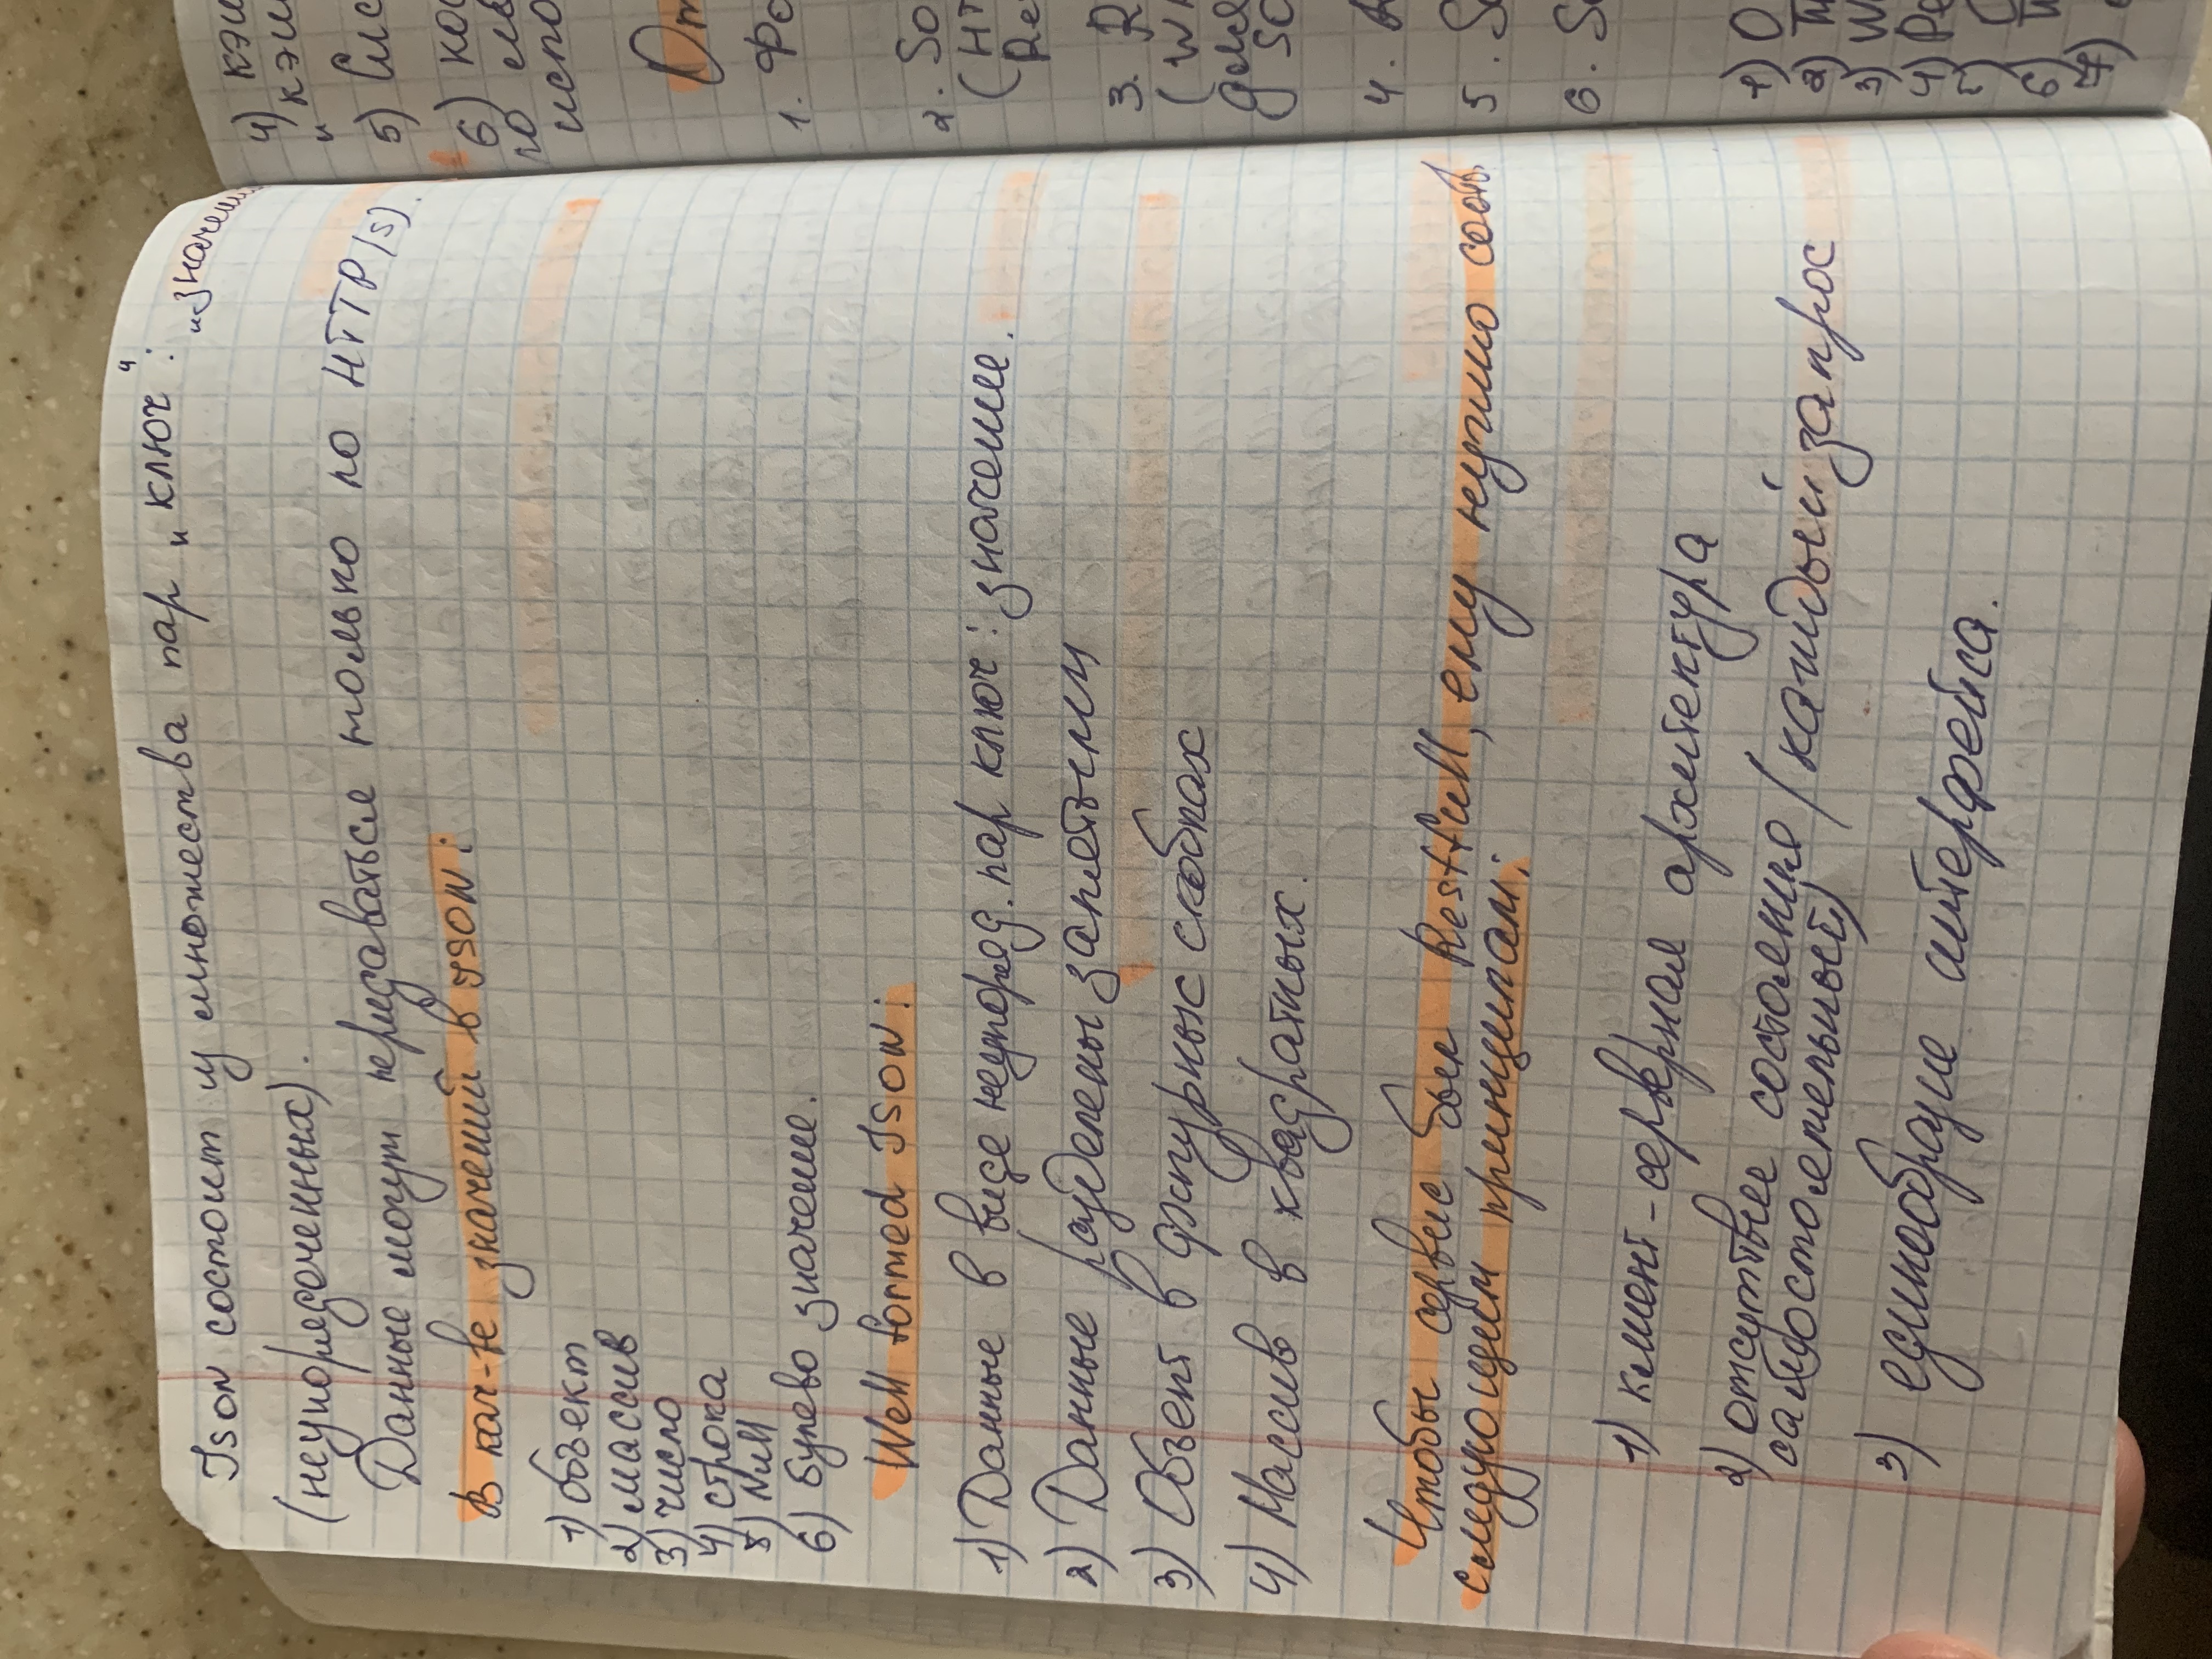 JSON состоит из множества пар „ключ“: „значени
(неупорядоченных).
Данные могут передаваться только по HTTP(s).
В кач-ве значений в JSON:
1) объект
2) массив
3) число
4) строка
5) Null
6) булево значение.
Well formed JSON:
1) Данные в виде неупоряд. пар ключ: значение.
2) Данные разделены запятыми
3) Объект в фигурных скобках
4) Массив в квадратных.
Чтобы сервис был Restfull, ему нужно соотв.
следующим принципам:
1) клиент-серверная архитектура
2) отсутствие состояния (каждый запрос
самостоятельный)
3) единообразие интерфейса.
4) кэш
„кэш
5) Сис
6) код
по
испо
От
1. Фо
2. SO
(HT
Re
3. R
(W
для
SO
4.
5. S
6. S
1) О
2)
3) W
4) Ре
5)
6)
7)